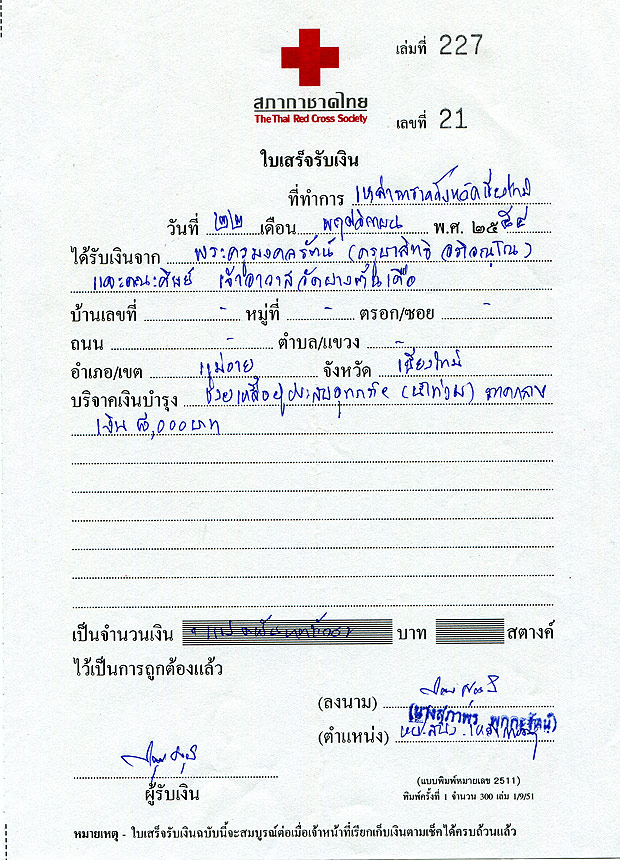 เล่มที่ 227
สภากาชาดไทย
The Thai Red Cross Society
เลขที่ 21
ใบเสร็จรับเงิน
ที่ทำการ เหล่ากาชาดจังหวัดเชียงใหม่
วันที่ ๒๒ เดือน พฤศจิกายน พ.ศ. ๒๕๕๔
ได้รับเงินจาก พระครูมงคลรัตน์ (ครูบาสิทธิ
และคณะศิษย์ เจ้าอาวาสวัดปางต้นเดื่อ
บ้านเลขที่ - หมู่ที่ - ตรอก/ซอย -
ถนน - ตำบล/แขวง -
อำเภอ/เขต แม่อาย จังหวัด เชียงใหม่
บริจาคเงินบำรุง ช่วยเหลือผู้ประสบอุทกภัย (น้ำท่วม) ภาคกลาง
เงิน ๘,๐๐๐ บาท
เป็นจำนวนเงิน บาท สตางค์
ไว้เป็นการถูกต้องแล้ว
(ลงนาม)
(นางสุภาพร
(ตำแหน่ง)
ผู้รับเงิน
(แบบพิมพ์หมายเลข 2511)
พิมพ์ครั้งที่ 1 จำนวน 300 เล่ม 1/9/51
หมายเหตุ - ใบเสร็จรับเงินฉบับนี้จะสมบูรณ์ต่อเมื่อเจ้าหน้าที่เรียกเก็บเงินตามเช็คได้ครบถ้วนแล้ว